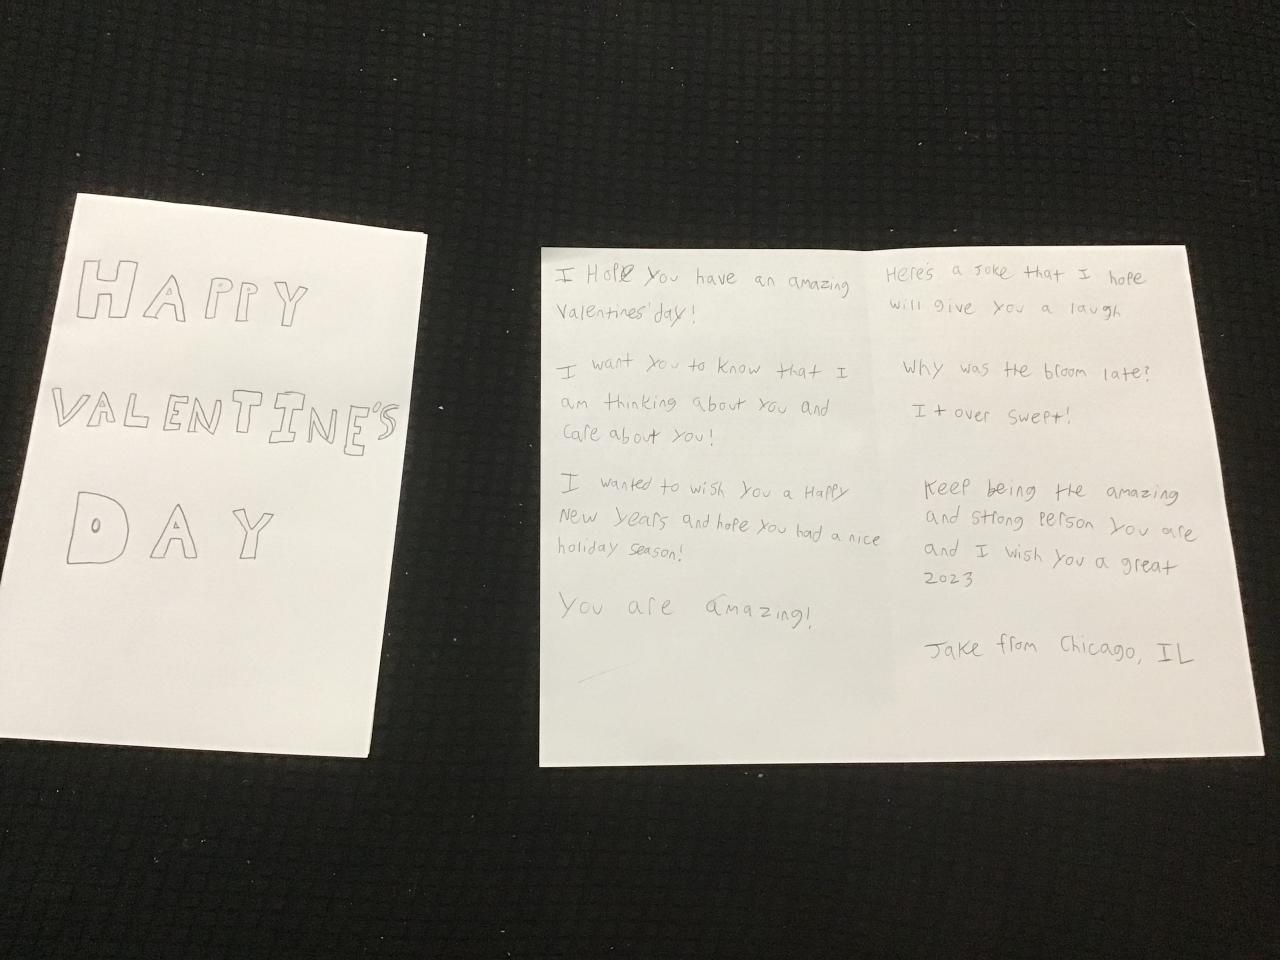 HAPPY
VALENTINE'S
DAY
I Hope you have an amazing
Valentines' day!
I want you to know that I
am thinking about you and
care about you!
I wanted to wish you a Happy
New Years and hope you had a nice
holiday season!
You are amazing!
Here's a joke that I hope
will give you a laugh
Why was the broom late?
It over swept!
Keep being the amazing
and strong person you are
and I wish you a great
2023
Jake from Chicago, IL